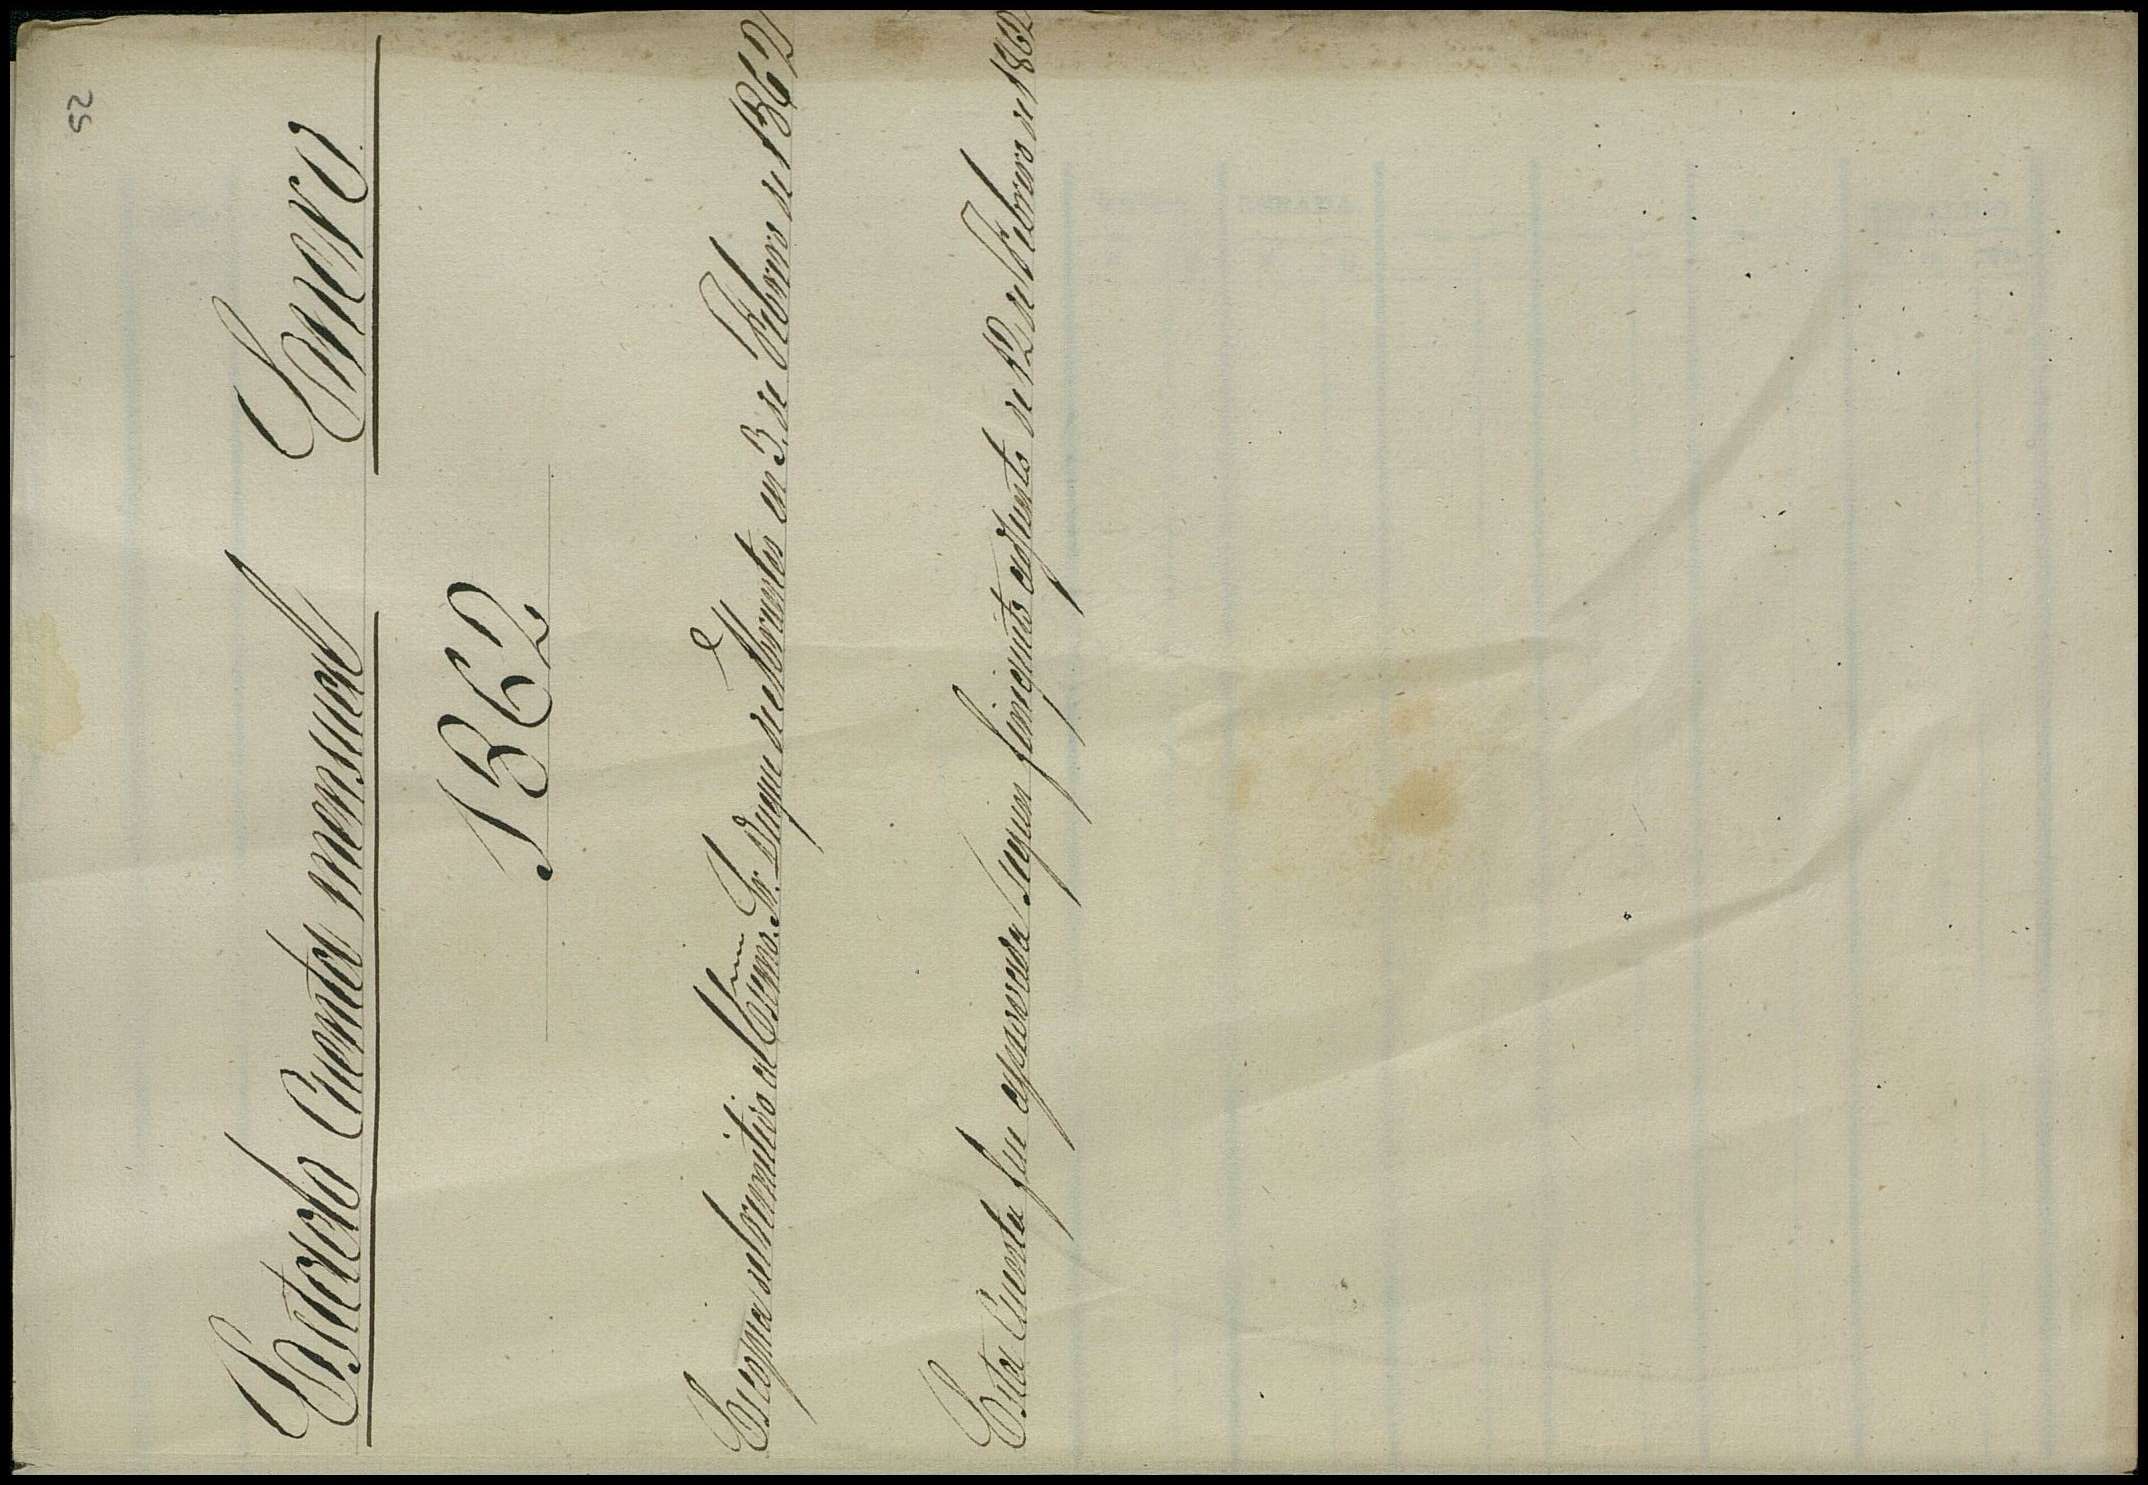 52
Estado Cuenta mensual Enero
1862
Es copia del remitido al Exmo. Sr. Duque de Abrantes en 3 de Febrero de 1862
Esta Cuenta fue aprovada segun finiquito adjunto de 12 de Febrero de 1862